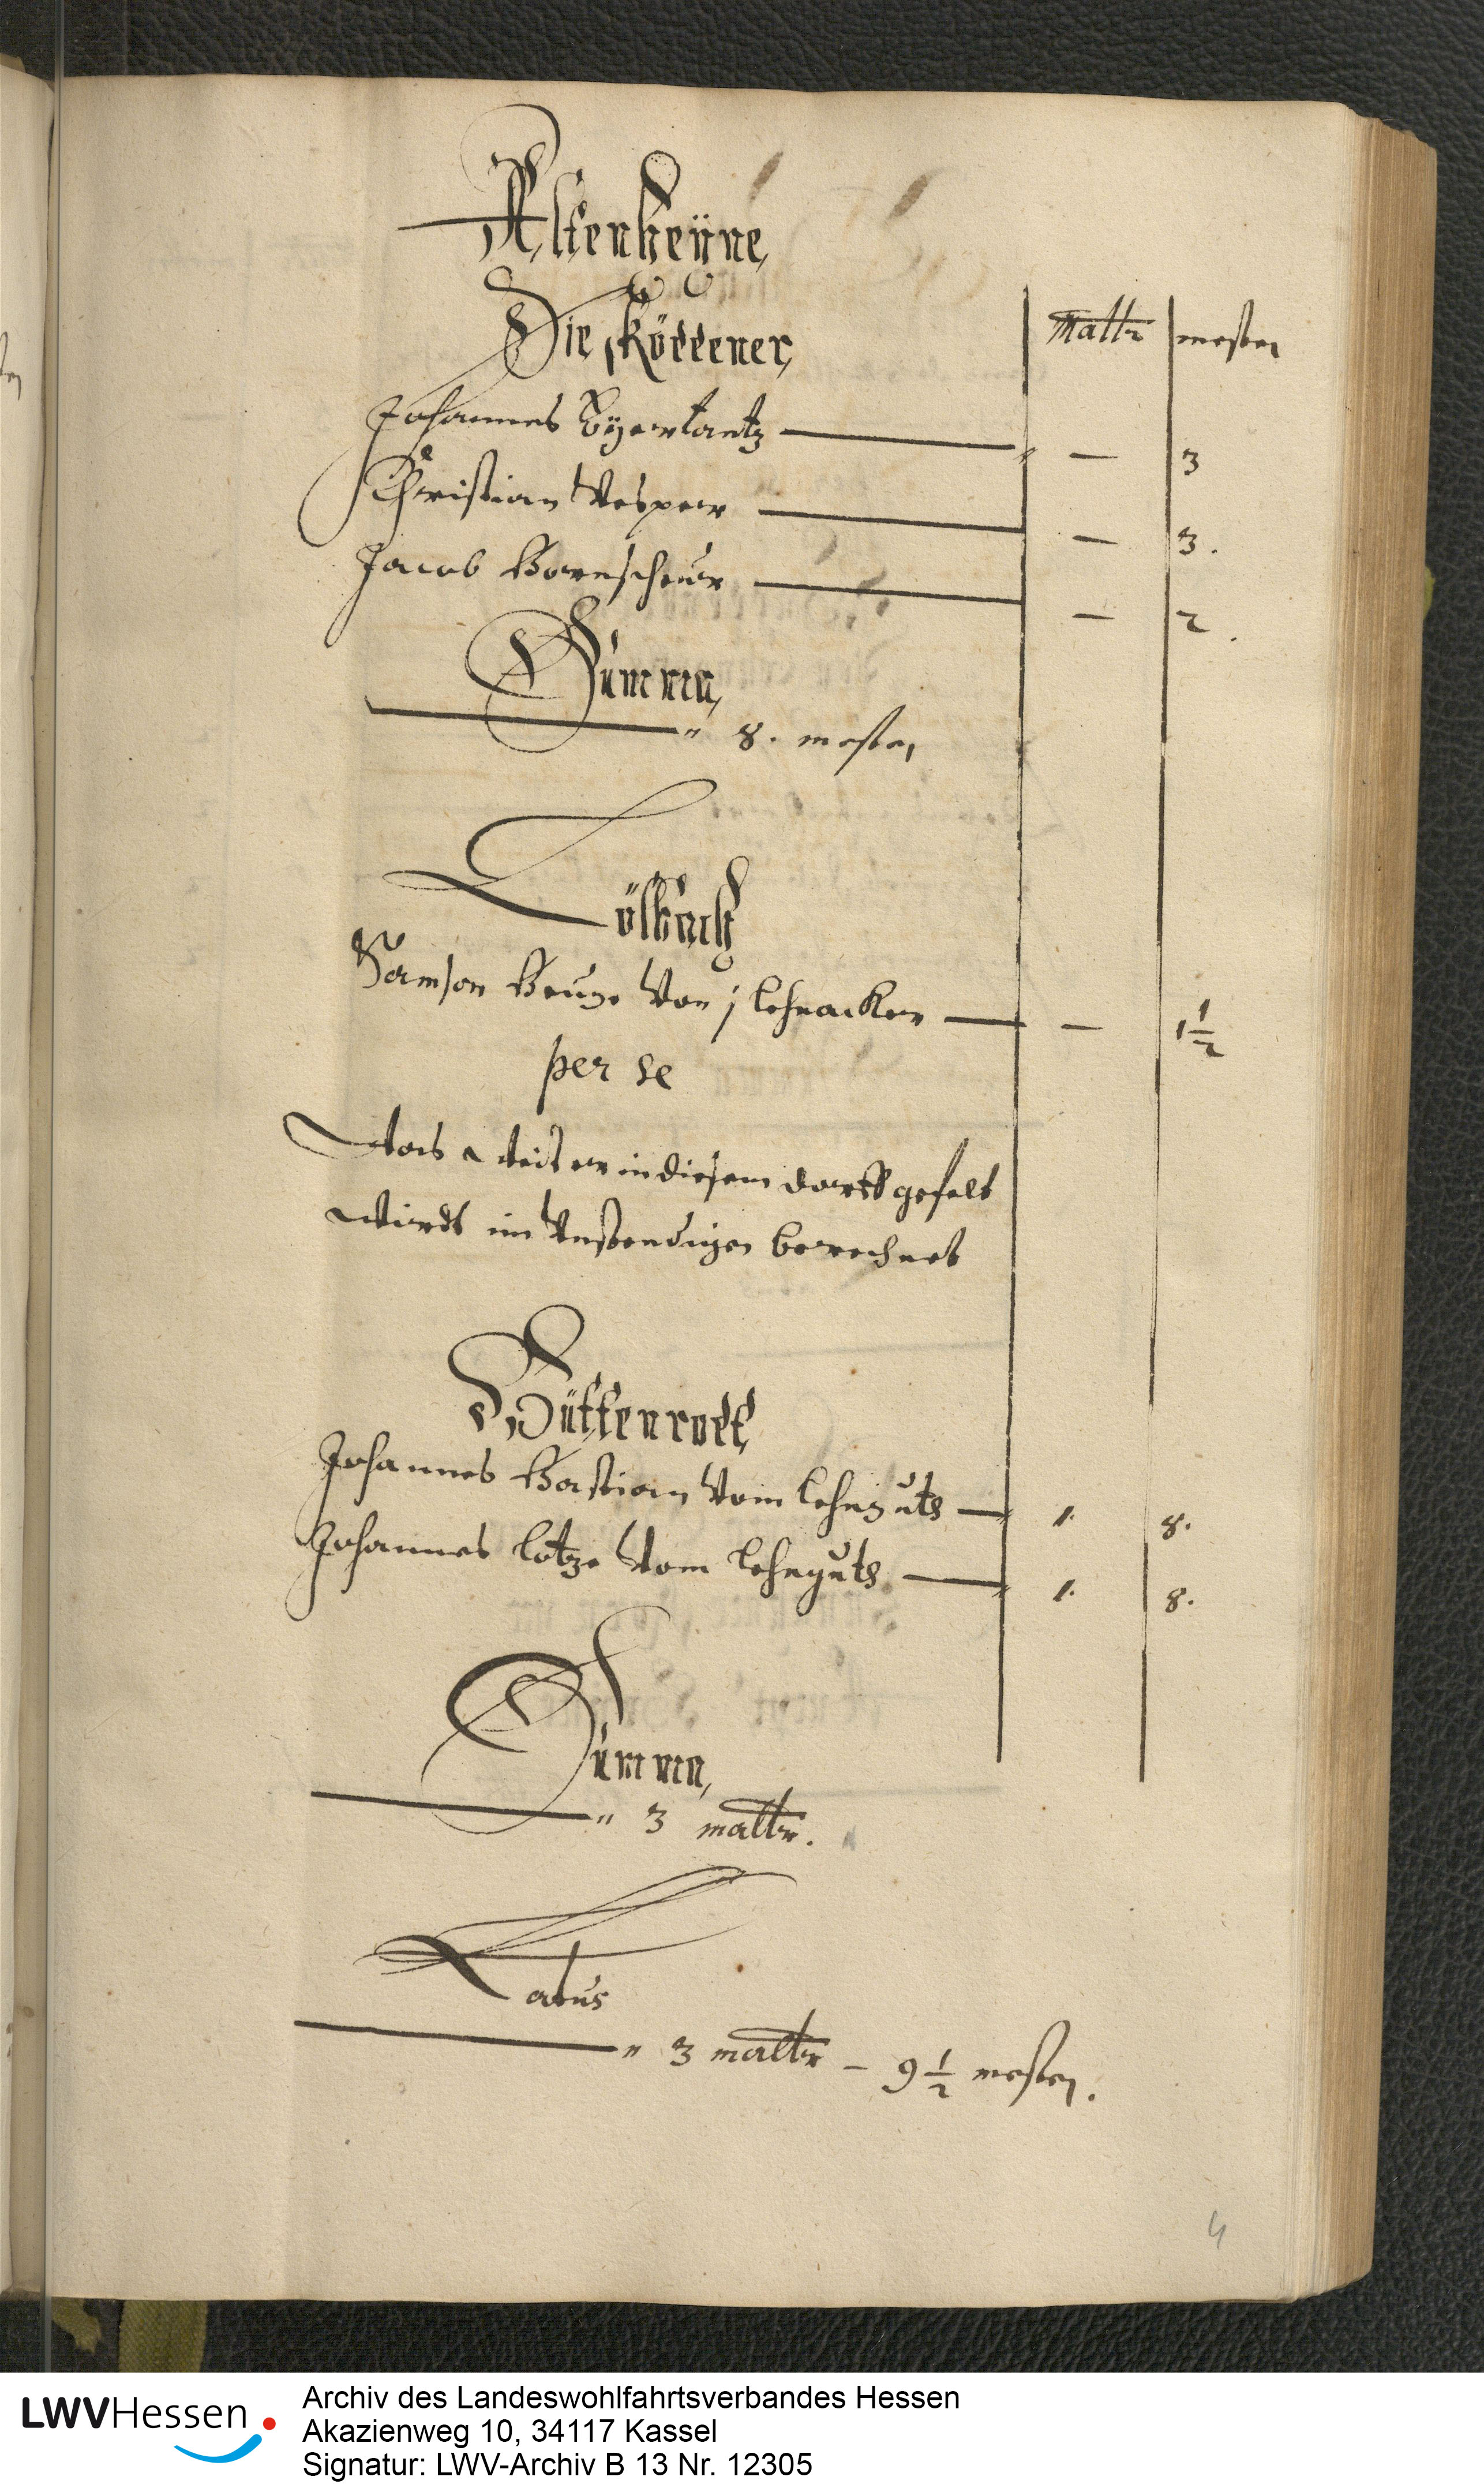 Altenheyne,
Die Köddener,
Maltr mesten
Johannes Eyertantz — 3
Christian Vesper — 3.
Jacob Bornscheuer — 2.
Summa,
8. mesten
Lölbach
Samson Bentze Von j lehnacker — 1 1/2
per se
Was weiter in diesem dorff gefelt
wirdt im Unstendigen berechnet
Hüttenrodt
Johannes Bastian Vom lehnguth 1. 8.
Johannes Lotze Vom lehnguth 1. 8.
Summa,
3 maltr.
Latus
3 maltr – 9 1/2 mesten.
4
LWVHessen
Archiv des Landeswohlfahrtsverbandes Hessen
Akazienweg 10, 34117 Kassel
Signatur: LWV-Archiv B 13 Nr. 12305